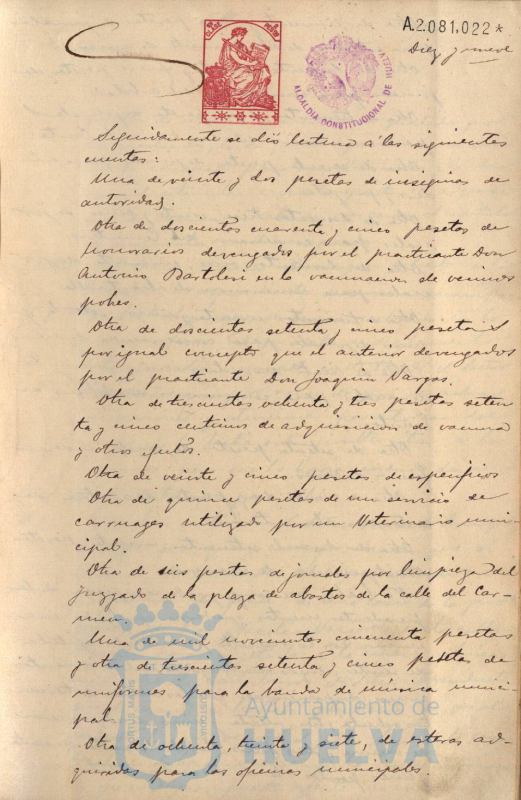 A.2.081.022*
Diez y nueve
CLASE
ALCALDIA CONSTITUCIONAL DE HUELVA
Seguidamente se dió lectura á las siguientes
cuentas:
Una de veinte y dos pesetas de insignias de
autoridad.
Otra de doscientas cuarenta y cinco pesetas de
honorarios devengados por el practicante Don
Antonio Bartolesi en la vacunacion de vecinos
pobres.
Otra de doscientas setenta y cinco pesetas
por igual concepto que el anterior devengados
por el practicante Don Joaquin Vargas.
Otra de trescientas ochenta y tres pesetas seten-
ta y cinco centimos de adquisicion de vacuna
y otros efectos.
Otra de veinte y cinco pesetas de especificos
Otra de quince pesetas de un servicio de
carruages utilizado por un Veterinario muni-
cipal.
Otra de seis pesetas de jornales por limpieza del
juzgado de la plaza de abastos de la calle del Car-
men.
Una de mil novecientas cincuenta pesetas
y otra de trescientas setenta y cinco pesetas de
uniformes para la banda de música muni-
cipal.
Otra de ochenta, treinta y siete, de esteras ad-
quiridas para las oficinas municipales.
Ayuntamiento de
HUELVA